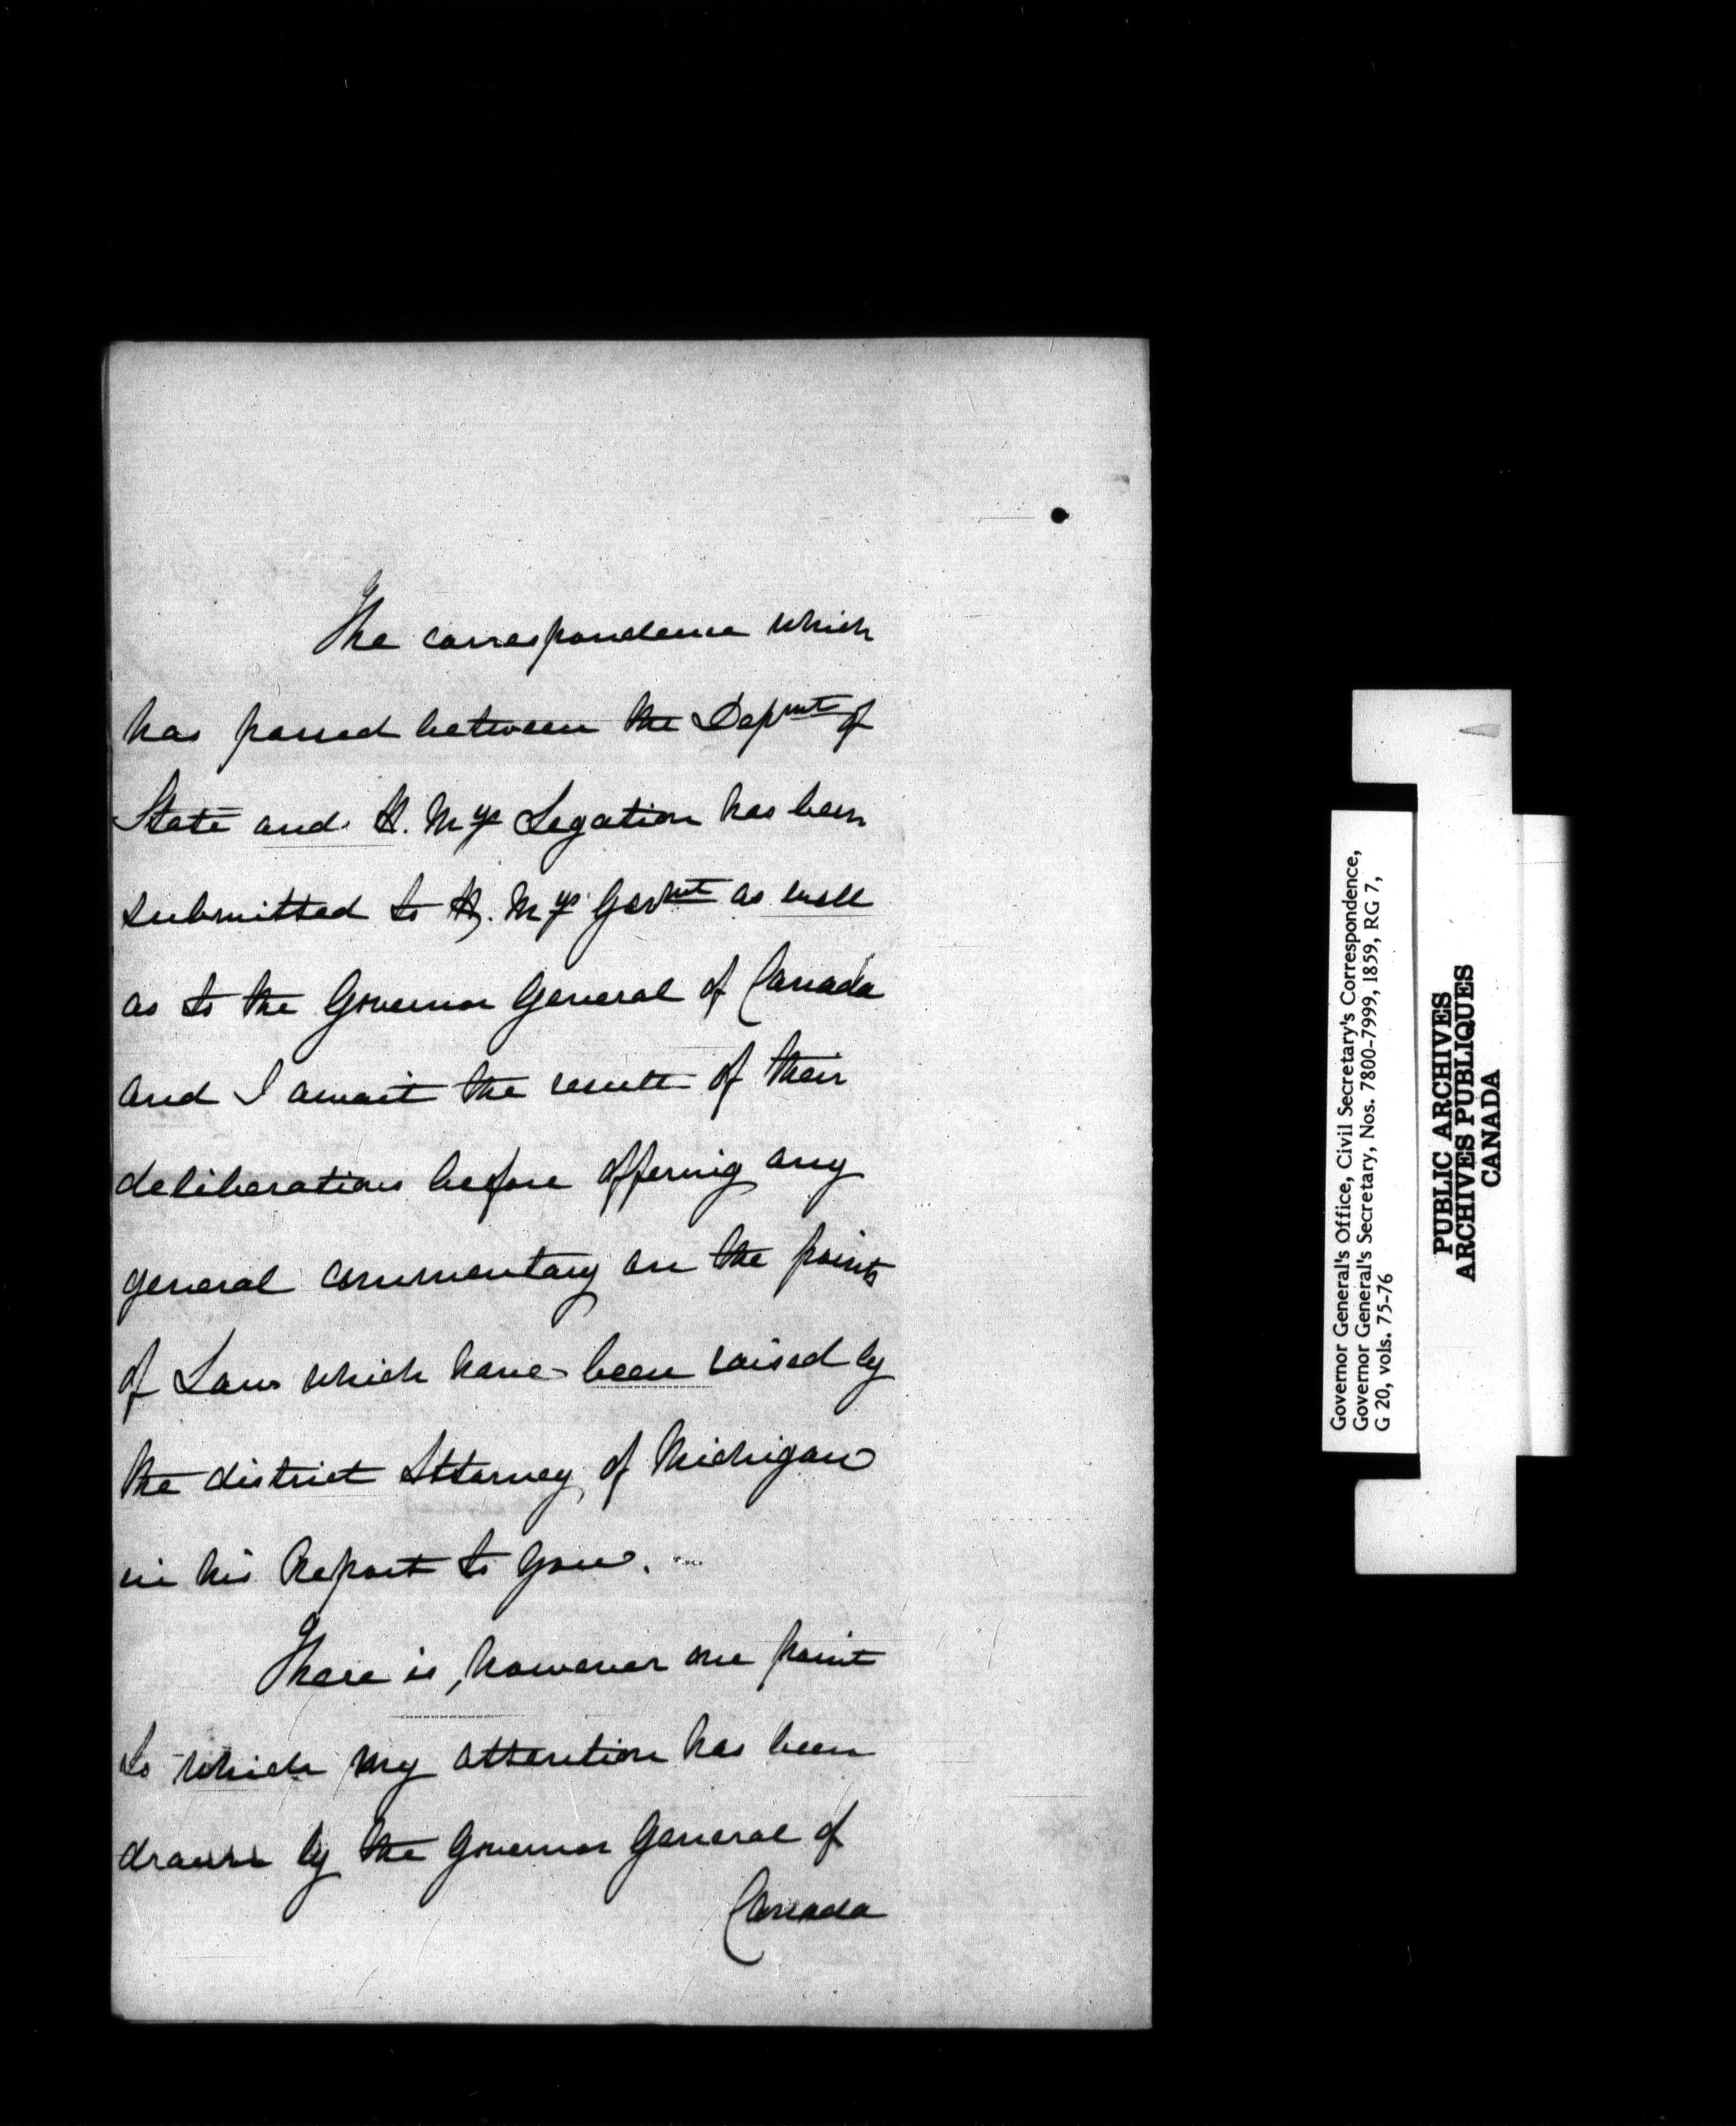 The correspondence which
has passed between the Depmt of
State and H. Mys Legation has been
submitted to H. Mys Govmt as well
as to the Governor General of Canada
and I await the result of their
deliberations before offering any
general commentary on the points
of Law which have been raised by
the district Attorney of Michigan
in his Report to you.
There is, however one point
to which my attention has been
drawn by the Governor General of
Canada
Governor General's Office, Civil Secretary's Correspondence,
Governor General's Secretary, Nos. 7800-7999, 1859, RG 7,
G 20, vols. 75-76
PUBLIC ARCHIVES
ARCHIVES PUBLIQUES
CANADA